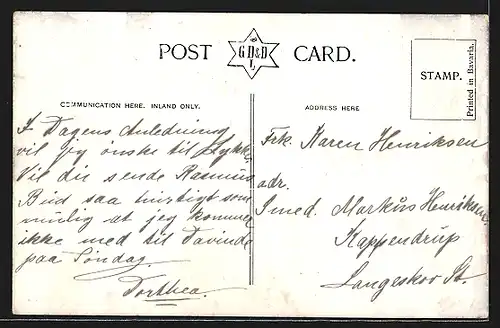 POST CARD.
G.D&D
L
STAMP.
Printed in Bavaria.
COMMUNICATION HERE. INLAND ONLY.
ADDRESS HERE
I Dagens Anledning
vil jeg ønske til Lykke,
Vil du sende Rasmus
Bud saa hurtigt som
mulig at jeg kommer
ikke med til Davinde
paa Søndag.
Dorthea.
Frk. Karen Henriksen
adr.
Smed. Markus Henriksen
Kappendrup
Langeskov St.